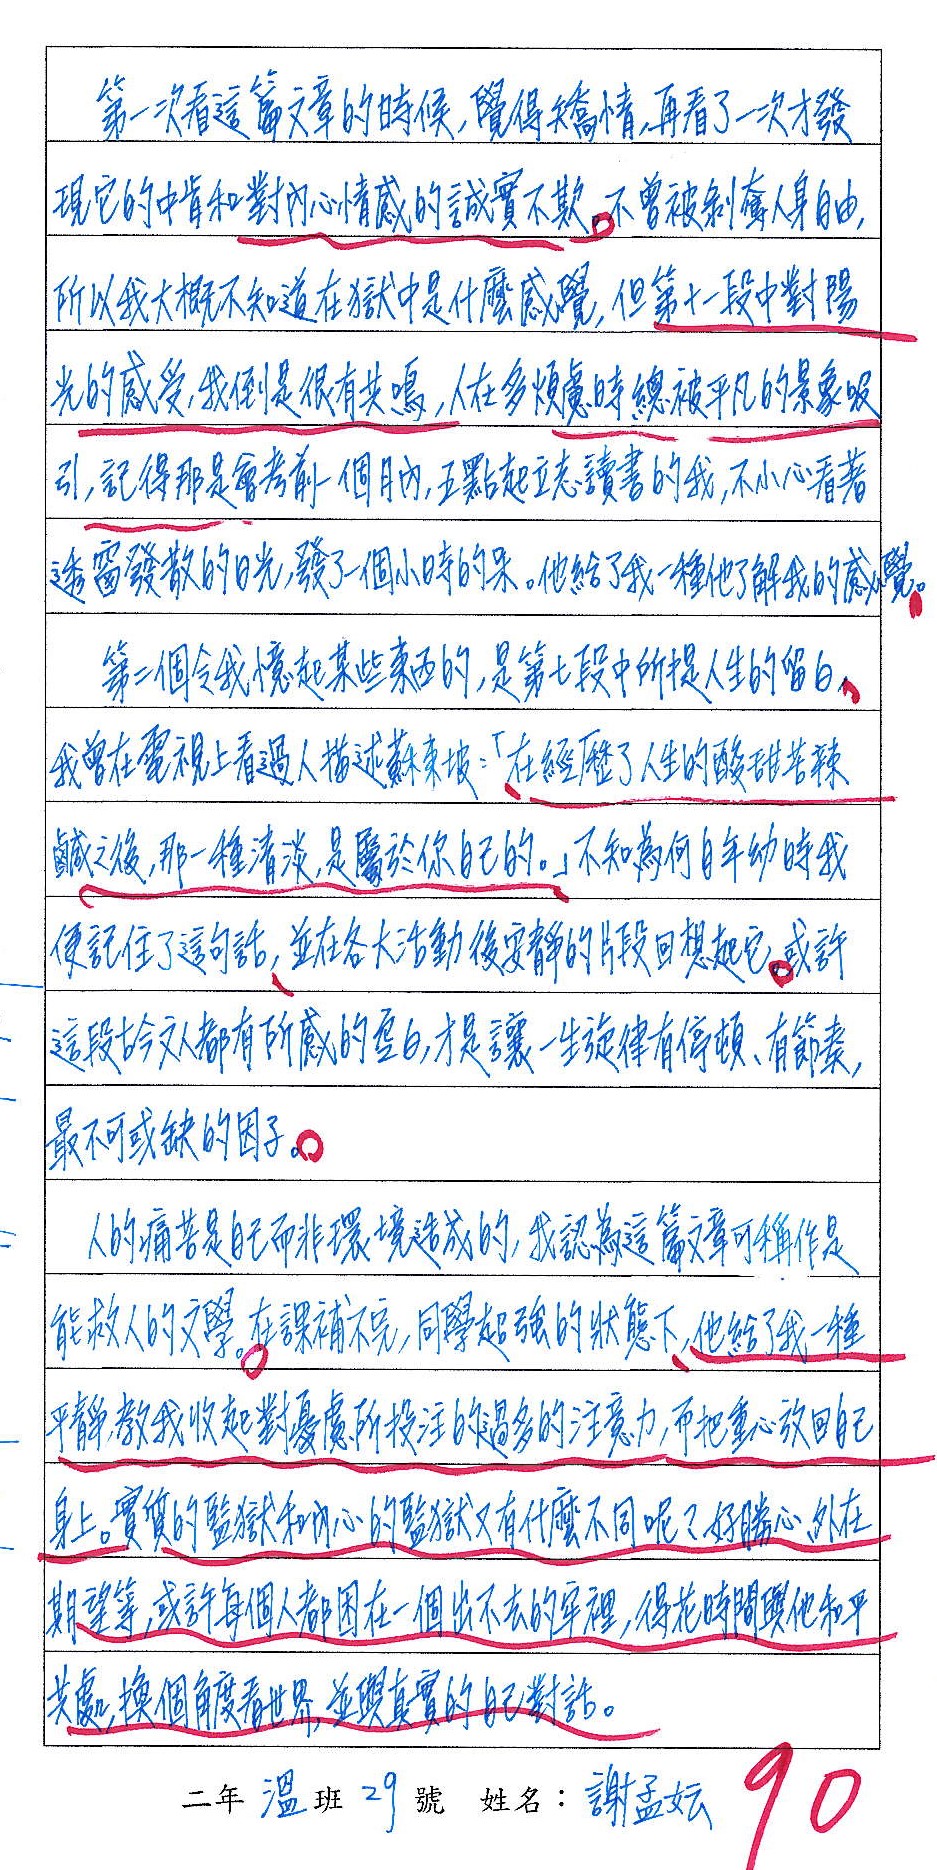 第一次看這篇文章的時候，覺得矯情，再看了一次才發
現它的中肯和對內心情感的誠實不欺。不曾被剝奪人身自由，
所以我大概不知道在獄中是什麼感覺，但第十一段中對陽
光的感受，我倒是很有共鳴，人在多煩慮時總被平凡的景象吸
引，記得那是會考前一個月內，五點起立志讀書的我，不小心看著
透窗發散的日光，發了一個小時的呆。他給了我一種他了解我的感覺。
第二個令我憶起某些東西的，是第七段中所提人生的留白，
我曾在電視上看過人描述蘇東坡：「在經歷了人生的酸甜苦辣
鹹之後，那一種清淡，是屬於你自己的。」不知為何自年幼時我
便記住了這句話，並在各大活動後安靜的片段回想起它。或許
這段古今文人都有所感的空白，才是讓一生旋律有停頓、有節奏，
最不可或缺的因子。
人的痛苦是自己而非環境造成的，我認為這篇文章可稱作是
能救人的文學。在課補不完，同學超強的狀態下，他給了我一種
平靜，教我收起對憂慮所投注的過多的注意力，而把重心放回自己
身上。實質的監獄和內心的監獄又有什麼不同呢？好勝心、外在
期望等，或許每個人都困在一個出不去的牢裡，得花時間與他和平
共處，換個角度看世界，並與真實的自己對話。
二年 溫 班 29 號 姓名：謝孟妘
90